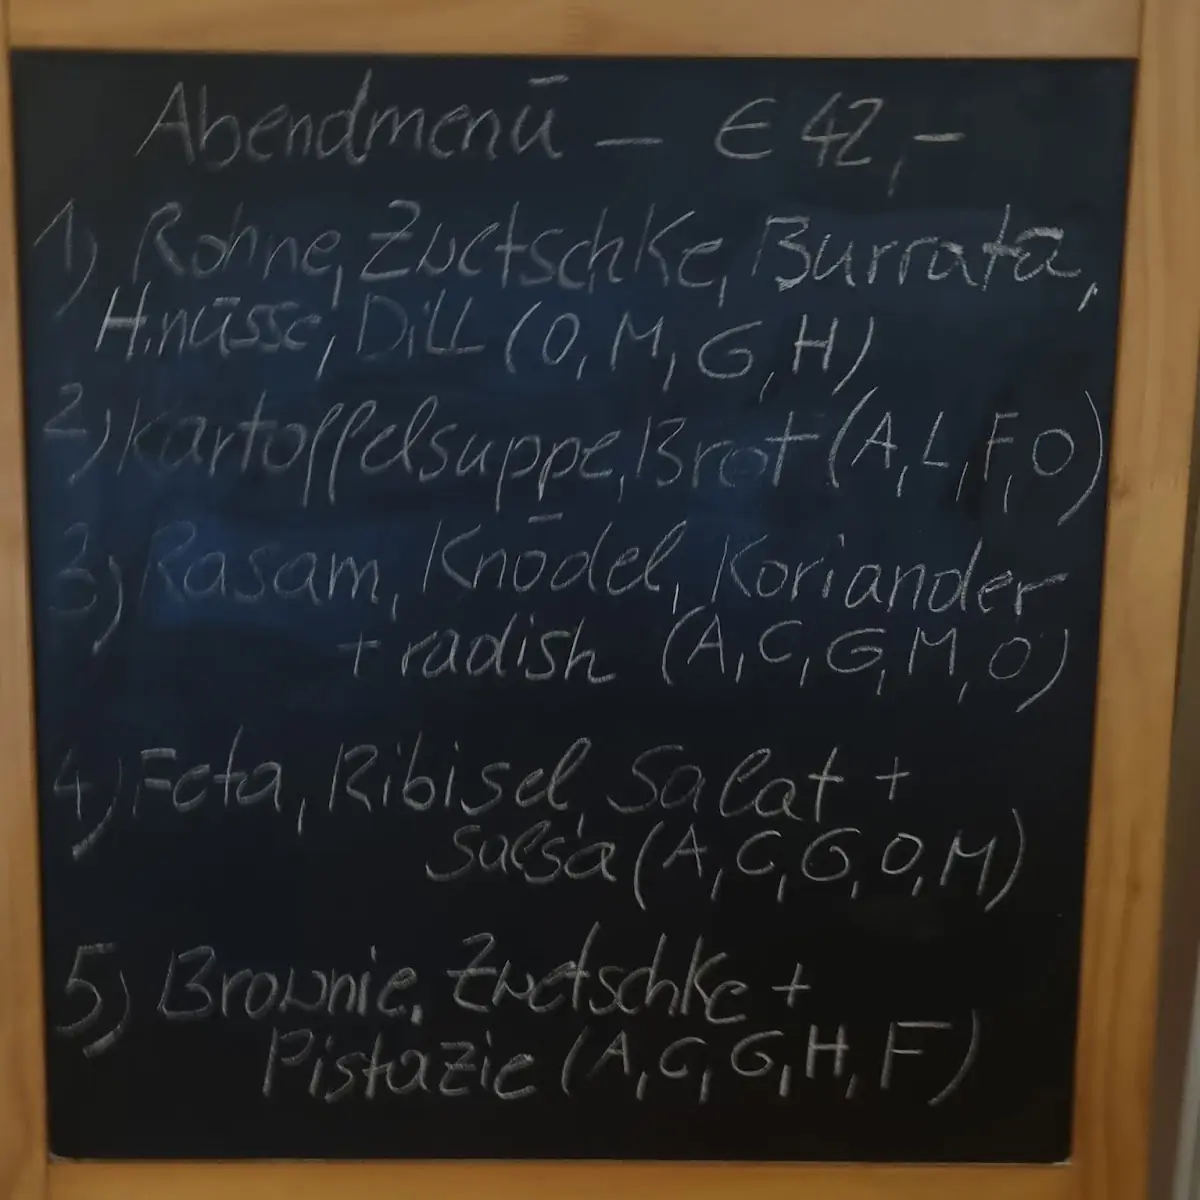 Abendmenü – € 42,-
1) Rohne, Zwetschke, Burrata,
H.nüsse, Dill (O, M, G, H)
2) Kartoffelsuppe, Brot (A, L, F, O)
3) Rasam, Knödel, Koriander
+ radish (A, C, G, M, O)
4) Feta, Ribisel, Salat +
Salsa (A, C, G, O, M)
5) Brownie, Zwetschke +
Pistazie (A, C, G, H, F)